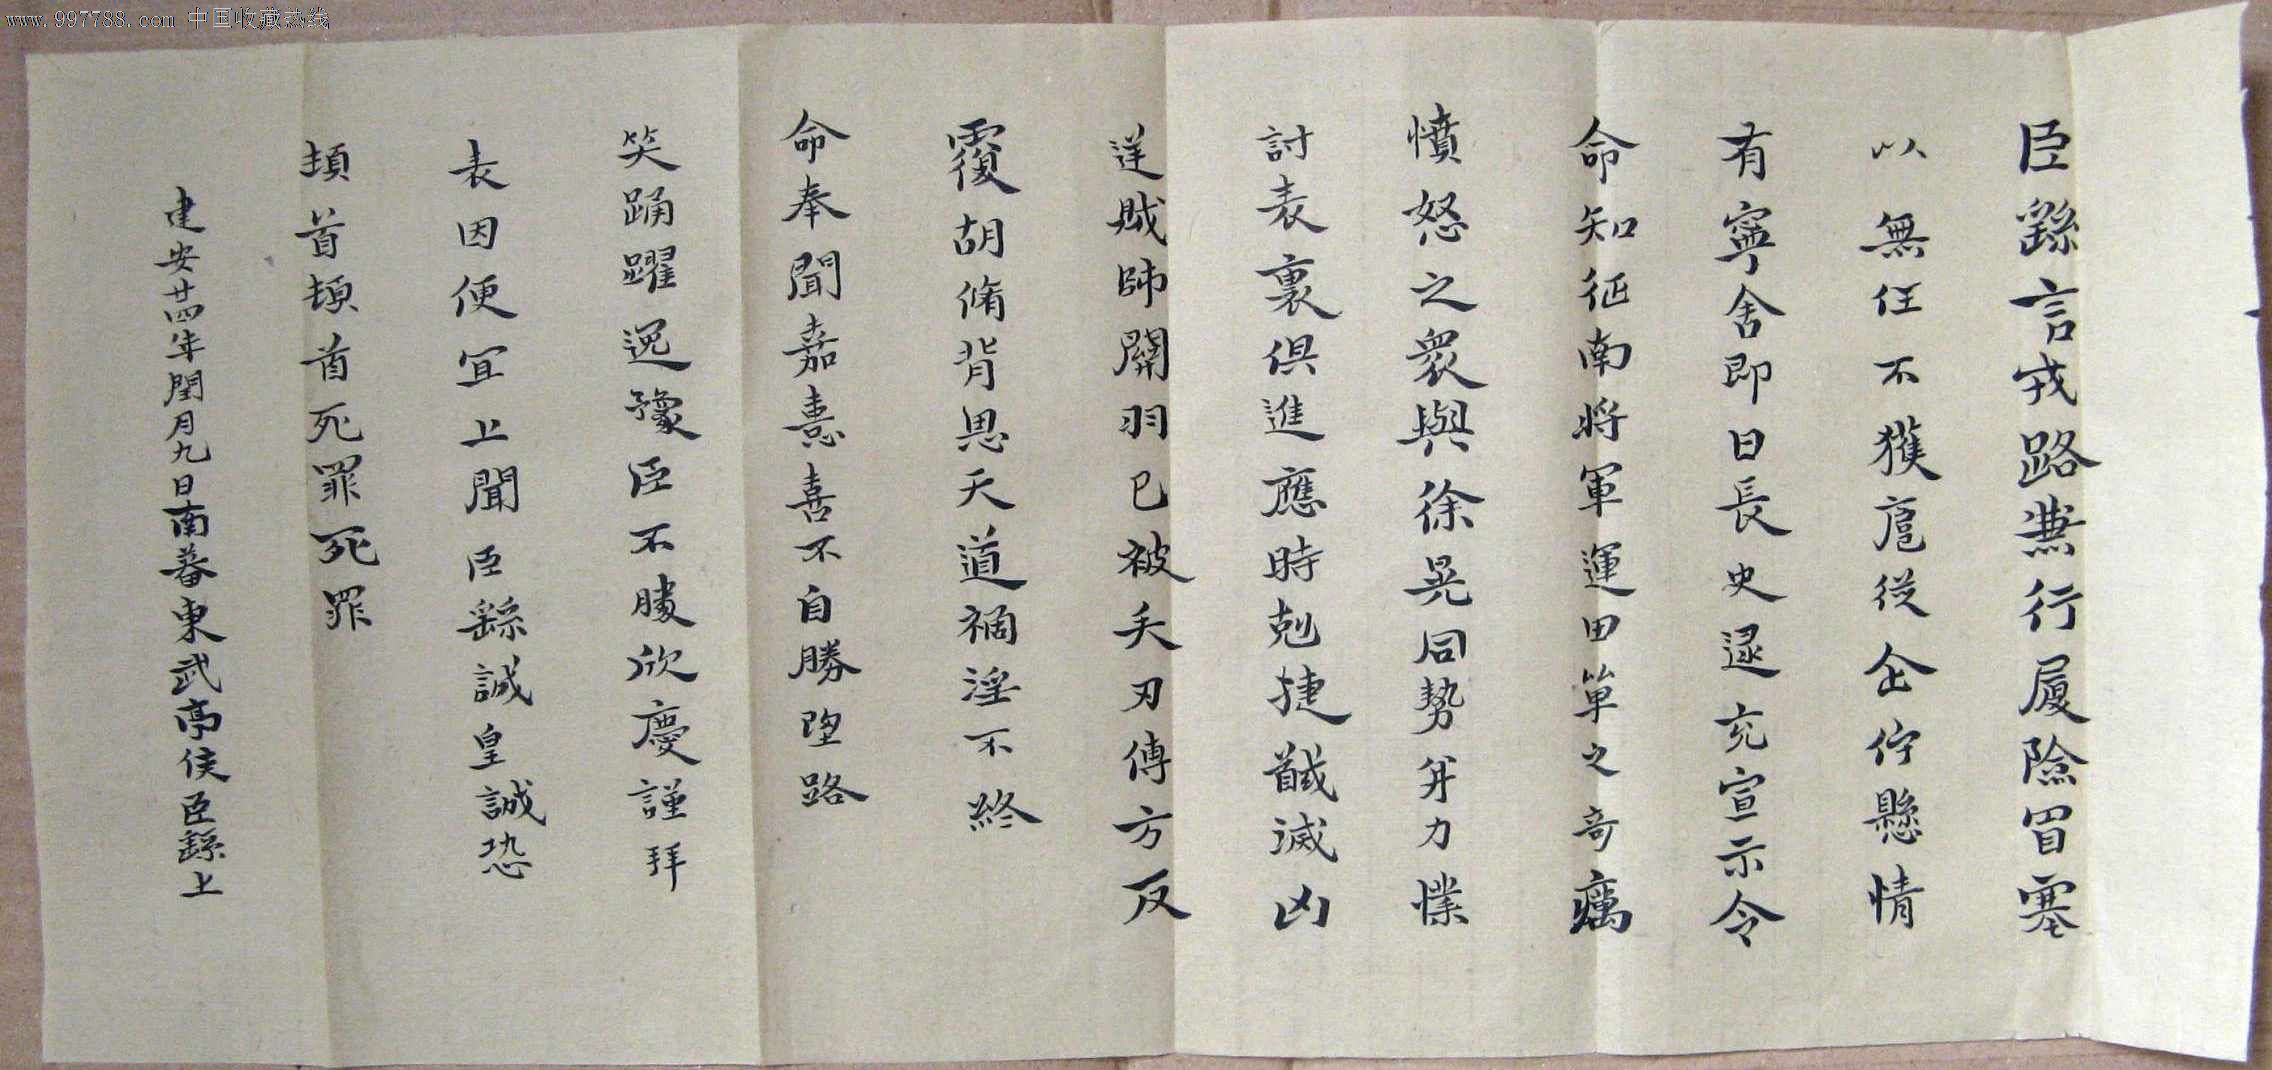 www.997788.com 中国收藏热线
臣繇言戎路兼行履險冒寒
以無任不獲扈從企佇懸情
有寧舍即日長史逯充宣示令
命知征南將軍運田單之奇癘
憤怒之衆與徐晃同勢并力撲
討表裏俱進應時剋捷馘滅凶
逆賊帥關羽已被矢刃傅方反
覆胡脩背恩天道禍淫不終
命奉聞嘉憙喜不自勝望路
笑踊躍逸豫臣不勝欣慶謹拜
表因便宜上聞臣繇誠皇誠恐
頓首頓首死罪死罪
建安廿四年閏月九日南蕃東武亭侯臣繇上